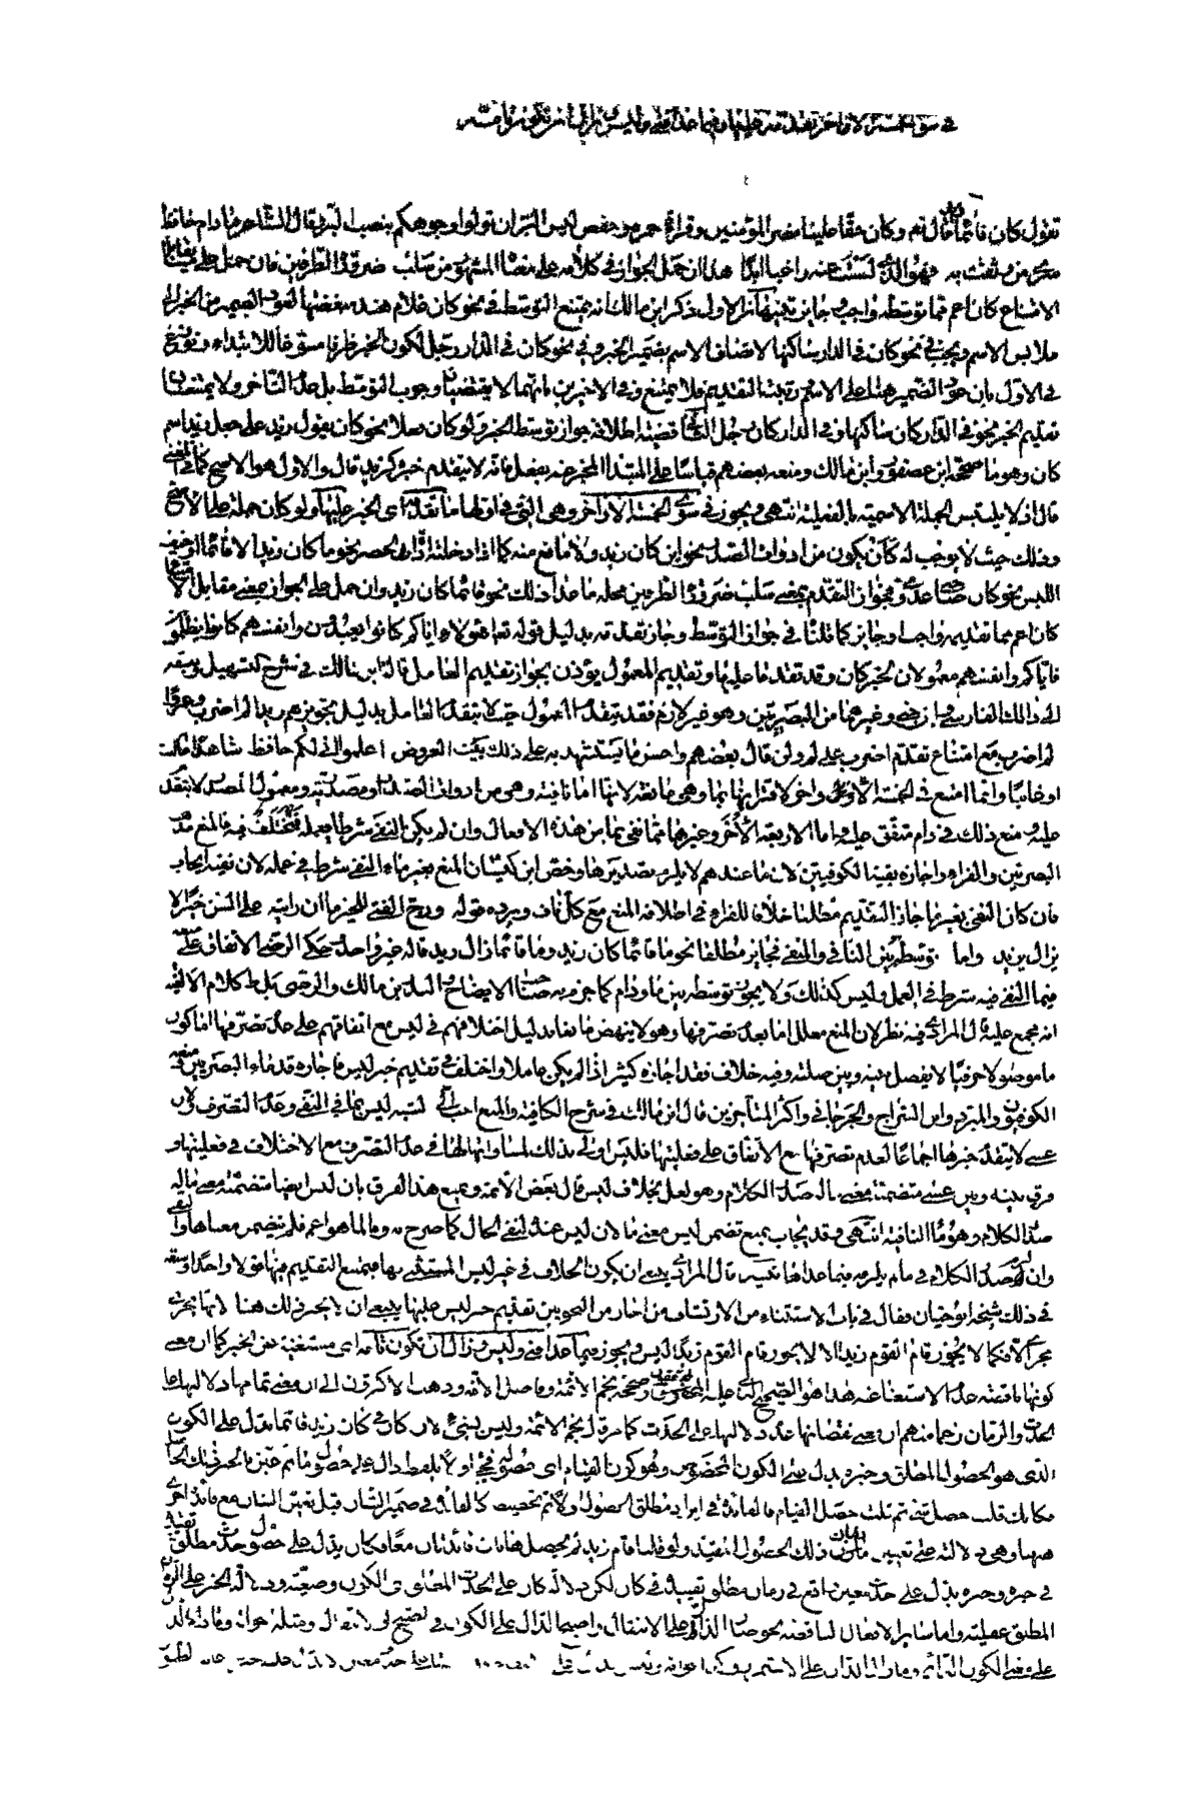 في سوى الخمسة الاواخر تقدمه عليها وفيما عدا فتئ وليس وزال ان تكون تامة
تقول كان قائما قال تعالى وكان حقا علينا نصر المؤمنين وقراءة حمزة وحفص ليس البر ان تولوا وجوهكم بنصب البر قال الشاعر ما دام حافظ
من وثقت به فهو الذي لست عنه راغبا ابدا هذا ان حمل الجواز في كلامه على معناه المفهوم من سلب ضرورة الطرفين فان حمل على ما يقابل
الامتناع كان اعم فما توسطه واجب وجائز تنبيهان الاول ذكر ابن مالك انه يمنع التوسط في نحو كان غلام هند مبغضها لعود الضمير من الخبر الى
ملابس الاسم ويجب في نحو كان في الدار ساكنها لاضافة الاسم بضمير الخبر وفي نحو كان في الدار رجل لكون الخبر ظرفا مسوقا للابتداء ونوزع
في الاول بان عود الضمير هنا على الاسم رتبته التقديم فلا يمتنع وفي الاخيرين بانهما لا يقتضيان وجوب التوسط بل عدم التأخر ولا يمتنعان
تقديم الخبر نحو في الدار كان ساكنها وفي الدار كان رجل الثاني قضية اطلاقه جواز توسط الخبر ولو كان فعلا نحو كان يقول زيد على جعل زيد اسم
كان وهو ما صححه ابن عصفور وابن مالك ومنعه بعضهم قياسا على المبتدا المخبر عنه بفعل فانه لا يتقدم خبره كزيد قال والاول هو الاصح كما في المغني
قال اذ لا يلتبس الجملة الاسمية بالفعلية انتهى ويجوز في سوى الخمسة الاواخر وهي التي في اولها ما تقدمه اي الخبر عليها ولو كان جملة على الاصح
وذلك حيث لا يوجب له كأن يكون من ادوات الصدر نحو اين كان زيد ولا مانع منه كما اذا دخلته اداة الحصر نحو ما كان زيد الا قائما او خيف
اللبس نحو كان صاحبي عدوي فجواز التقدم بمعنى سلب ضرورة الطرفين محله ما عدا ذلك نحو قائما كان زيد وان حمل على الجواز بمعنى مقابل الامتناع
كان اعم مما تقديمه واجب وجائز كما قلنا في جواز التوسط وجاز تقدمه بدليل قوله تعالى اهؤلاء اياكم كانوا يعبدون وانفسهم كانوا يظلمون
فاياكم وانفسهم معمولان لخبر كان وقد تقدما عليها وتقديم المعمول يؤذن بجواز تقديم العامل قاله ابن مالك في شرح التسهيل وسبقه
الى ذلك الفارسي وابن جني وغيرهما من البصريين وهو غير لازم فقد يتقدم المعمول حيث لا يتقدم العامل بدليل تجويزهم زيدا لم اضرب وعمرا
لم اضرب مع امتناع تقدم اضرب على لم ولن قال بعضهم واحسن ما يستشهد به على ذلك بيت العروض اعلموا اني لكم حافظ شاهدا ما كنت
او غائبا وانما امتنع في الخمسة الاول واخر لاقترانها بما وهي مانعة لانها اما نافية وهي من ادوات الصدر او مصدرية ومعمول المصدر لا يتقدم
عليه ومنع ذلك في دام متفق عليه واما الاربعة الأخر وغيرها مما نفي بما من هذه الافعال وان لم يكن النفي شرطا لعمله فمختلف فيه فالمنع مذهب
البصريين والفراء واجازه بقية الكوفيين لان ما عندهم لا يلزم تصديرها وخص ابن كيسان المنع بغير ما النفي شرط في عمله لان نفيه ايجاب
فان كان النفي بغير ما جاز التقديم مطلقا خلافا للفراء في اطلاقه المنع مع كل ناف ويرده قوله ورج الفتى للخير ما ان رايته على السن خيرا لا
يزال يزيد واما توسطه بين النافي والمنفي فجائز مطلقا نحو ما قائما كان زيد وما قائما زال زيد قاله غير واحد وحكى الرضي الاتفاق على
فيما النفي فيه شرط في العمل وليس كذلك ولا يجوز توسطه بين ما ودام كما جزم به صاحب الايضاح والبدر بن مالك والرضي بل ظاهر كلام الالفية
انه مجمع عليه قال المرادي فيه نظر لان المنع معلل اما بعدم تصرفها وهو لا ينهض مانعا بدليل اختلافهم في ليس مع اتفاقهم على عدم تصرفها اما كون
ما موصولا حرفيا لا يفصل بينه وبين صلته وفيه خلاف فقد اجازه كثير اذا لم يكن عاملا واختلف في تقديم خبر ليس فاجازه قدماء البصريين ومنعه
الكوفيون والمبرد وابن السراج والجرجاني واكثر المتأخرين قال ابن مالك في شرح الكافية والمنع احب الي لشبه ليس بما في النفي وعدم التصرف ولان
عسى لا يتقدم خبرها اجماعا لعدم تصرفها مع الاتفاق على فعليتها فليس اولى بذلك لمساواتها لها في عدم التصرف مع الاختلاف في فعليتها و
فرق بينه وبين عسى متضمنة معنى ماله صدر الكلام وهو لعل بخلاف ليس قال بعض الائمة ويمنع هذا الفرق بان ليس ايضا متضمنة معنى ماله
صدر الكلام وهو ما النافية انتهى وقد يجاب بمنع تضمن ليس معنى ما لان ليس عنده لنفي الحال كما صرح به وما لما هو اعم فلم يتضمن معناها وبقي
وان له صدر الكلام في ما لم يلزمه فيما عداها تنبيه قال المرادي ينبغي ان يكون الخلاف في غير ليس المستثنى بها فيمتنع التقديم فيها قولا واحدا وسبقه
في ذلك شيخه ابو حيان فقال في باب الاستثناء من الارتشاف من اجاز من النحويين تقديم خبر ليس عليها ينبغي ان لا يجيز ذلك هنا لانها تجري
مجرى الا فكما لا يجوز قام القوم زيدا الا لا يجوز قام القوم زيدا ليس ويجوز فيما عدا فتئ وليس وزال ان تكون تامة اي مستغنية عن الخبر كما ان معنى
كونها ناقصة عدم الاستغناء عنه هذا هو الصحيح الذي عليه المحققون وصححه نجم الائمة وفاضل الامة وذهب الاكثرون الى ان معنى تمامها دلالتها على
الحدث والزمان زعما منهم ان معنى نقصانها عدم دلالتها على الحدث كما مر قال نجم الائمة وليس بشيء لان كان في كان زيد قائما يدل على الكون
الذي هو الحصول المطلق وخبره يدل على الكون المخصوص وهو كون القيام اي حصوله فجيء اولا بلفظ دال على حصول ما ثم عين بالخبر ذلك الحاصل
فكانك قلت حصل شيء ثم قلت حصل القيام فالفائدة في ايراد مطلق الحصول اولا ثم تخصيصه كالفائدة في ضمير الشان قبل تعيين الشان مع فائدة اخرى
ههنا وهي دلالته على تعيين زمان ذلك الحصول المقيد ولو قلنا قام زيد لم يحصل هاتان الفائدتان معا فكان يدل على حصول حدث مطلق تقييده
في خبره وخبره يدل على حدث معين واقع في زمان مطلق تقييده في كان لكن دلالة كان على الحدث المطلق اي الكون وضعية ودلالة الخبر على الزمان
المطلق عقلية واما سائر الافعال الناقصة نحو صار الدال على الانتقال واصبح الدال على الكون في الصبح
على معنى الكون الدائم وما زال الدال على الاستمرار وكذا اخواته وليس